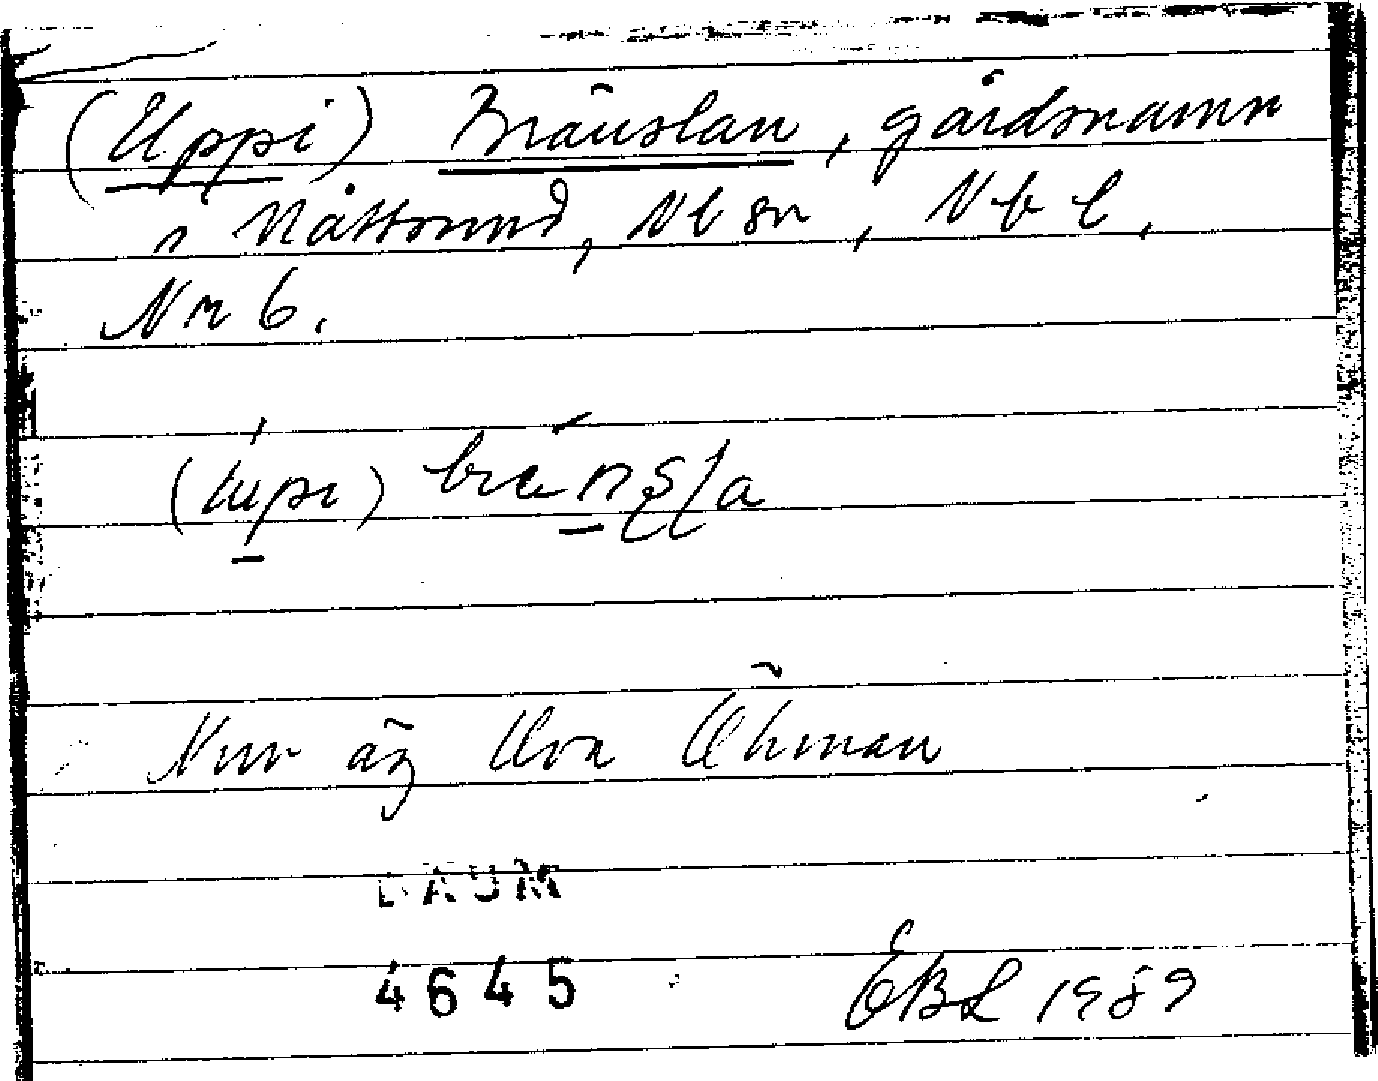 (Uppi) Bränslan, gårdsnamn
i Nåttsund, Nl sn, Nb l,
Nr 6.
(úpi) brénsla
Nuv äg Åke Öhman
DAUM
4645
EBL 1989